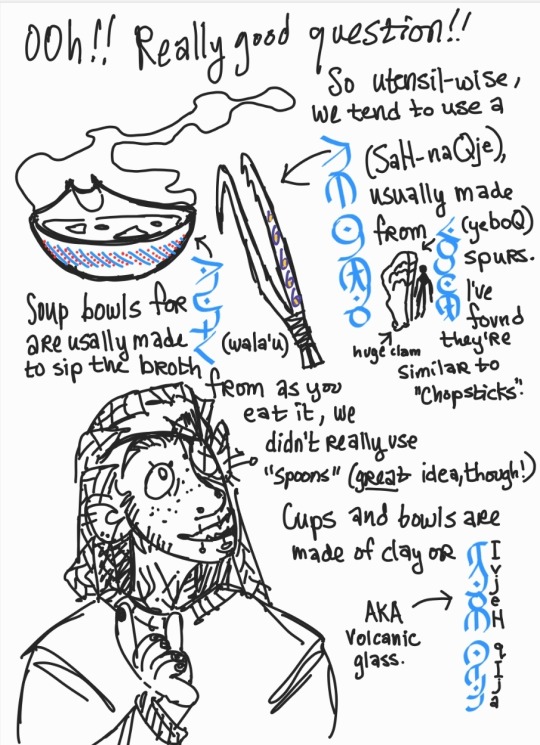 OOh!! Really good question!!
So utensil-wise,
we tend to use a
(SaH-naQje),
usually made
from (yeboQ)
spurs.
I've
found
they're
similar to
"chopsticks".
huge clam
Soup bowls for
are usally made (wala'u)
to sip the broth
from as you
eat it, we
didn't really use
"spoons" (great idea, though!)
Cups and bowls are
made of clay or
IvjeH
qIja
AKA
volcanic
glass.